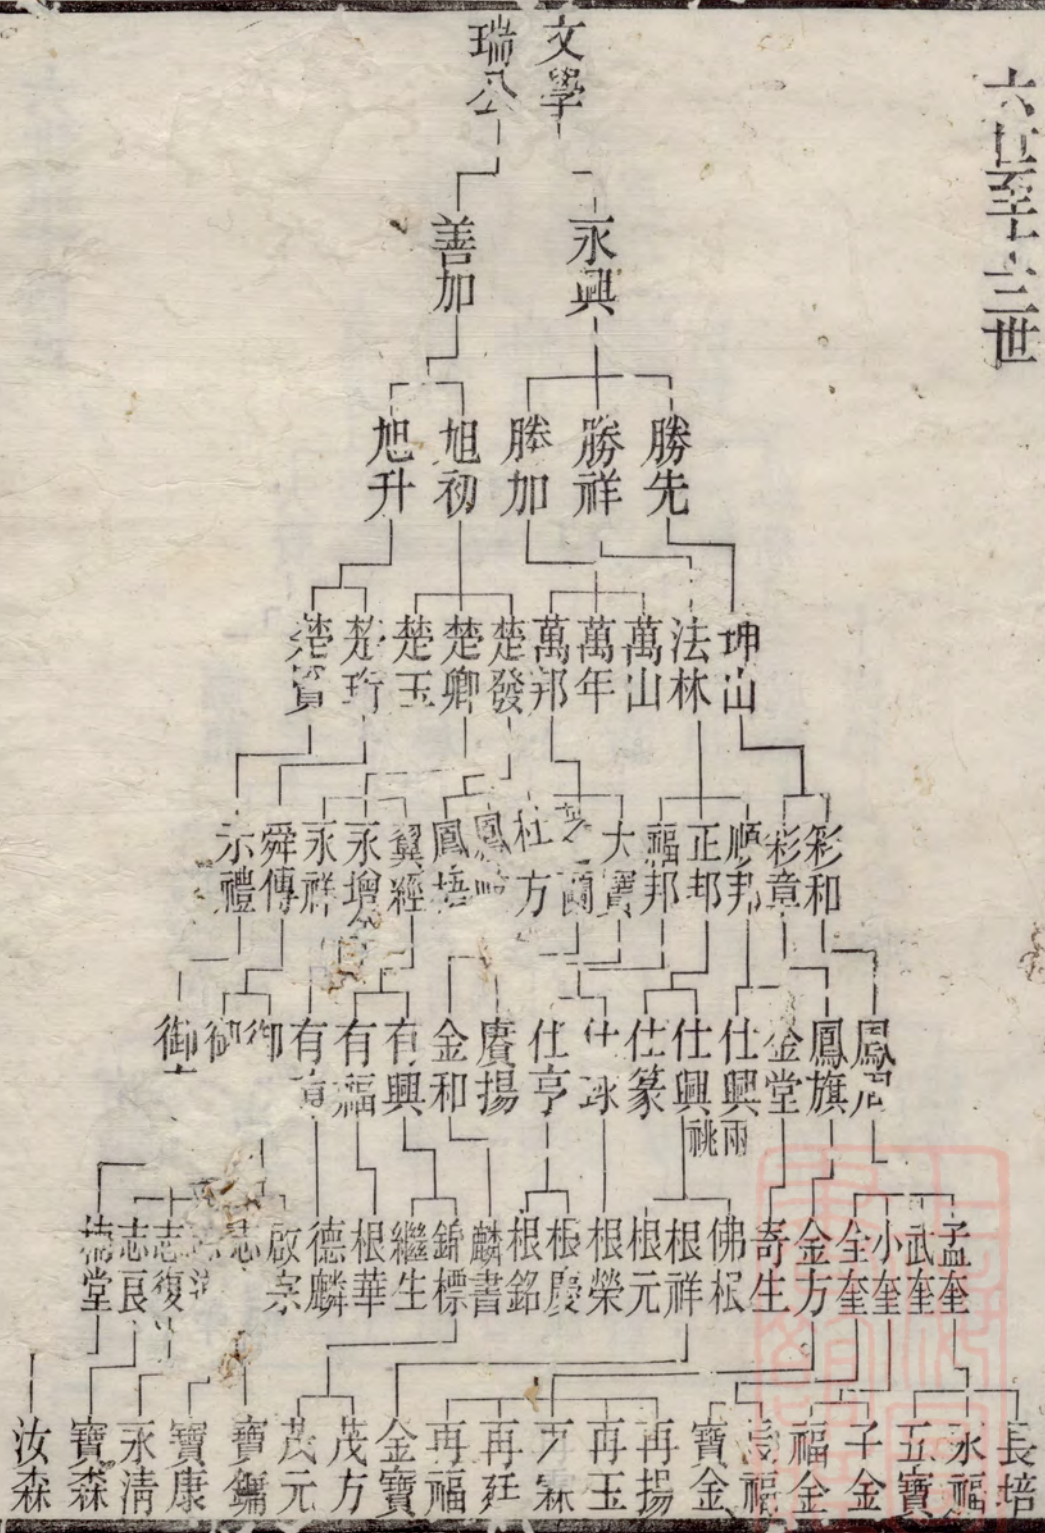 六世至十三世
文學
瑞公
永興
善加
勝先
勝祥
勝加
旭初
旭升
坤山
法林
萬山
萬年
萬邦
楚發
楚卿
楚玉
楚珩
楚寶
彩和
彩章
順邦
正邦
福邦
大寶
杜方
鳳
鳳培
翼經
永增公
永祥
舜傳
示禮
鳳
鳳旗
金堂
仕興
兩祧
仕興
仕篆
仕
仕亨
賡揚
金和
有興
有福
有
御
御
御
孟奎
武奎
小奎
全奎
金方
寄生
佛根
根祥
根元
根榮
根慶
根銘
麟書
錦標
繼生
根華
德麟
啟宗
志
志
志復
志良
楠堂
長培
永福
五寶
子金
福金
長福
寶金
再揚
再玉
霖
再廷
再福
金寶
茂方
茂元
寶鏞
寶康
永清
寶森
汝森